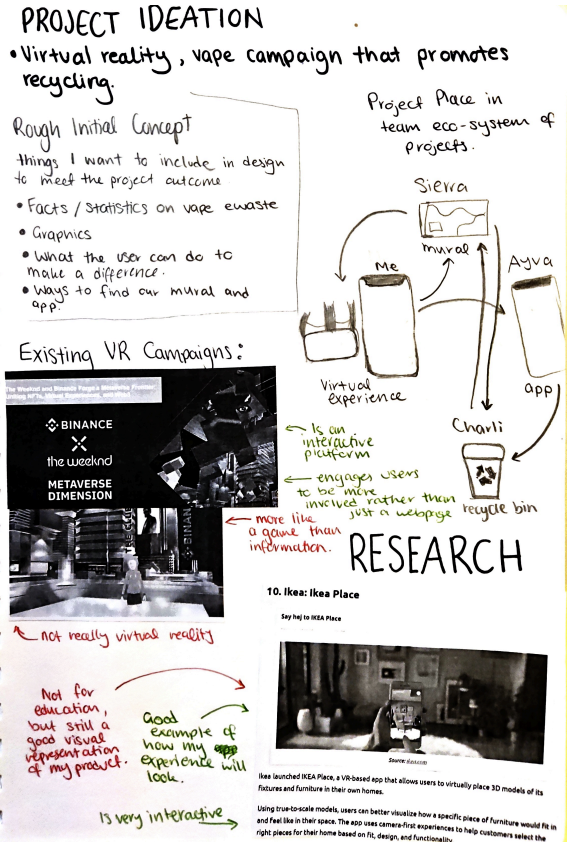 PROJECT IDEATION
• Virtual reality, vape campaign that promotes
recycling.
Rough Initial Concept
things I want to include in design
to meet the project outcome.
• Facts / statistics on vape ewaste
• Graphics
• What the user can do to
make a difference.
• Ways to find our mural and
app.
Project Place in
team eco-system of
projects.
Sierra
mural
Me
Ayva
Virtual
experience
app
Charli
recycle bin
Existing VR Campaigns:
BINANCE
X
the weeknd
METAVERSE
DIMENSION
BINAN
Is an
interactive
platform
engages users
to be more
involved rather than
just a webpage
more like
a game than
information.
not really virtual reality
RESEARCH
10. Ikea: Ikea Place
Say hej to IKEA Place
Source: ikea.com
Ikea launched IKEA Place, a VR-based app that allows users to virtually place 3D models of its
fixtures and furniture in their own homes.
Using true-to-scale models, users can better visualize how a specific piece of furniture would fit in
and feel like in their space. The app uses camera-first experiences to help customers select the
right pieces for their home based on fit, design, and functionality.
Not for
education,
but still a
good visual
representation
of my product.
Good
example of
how my
experience will
look.
Is very interactive